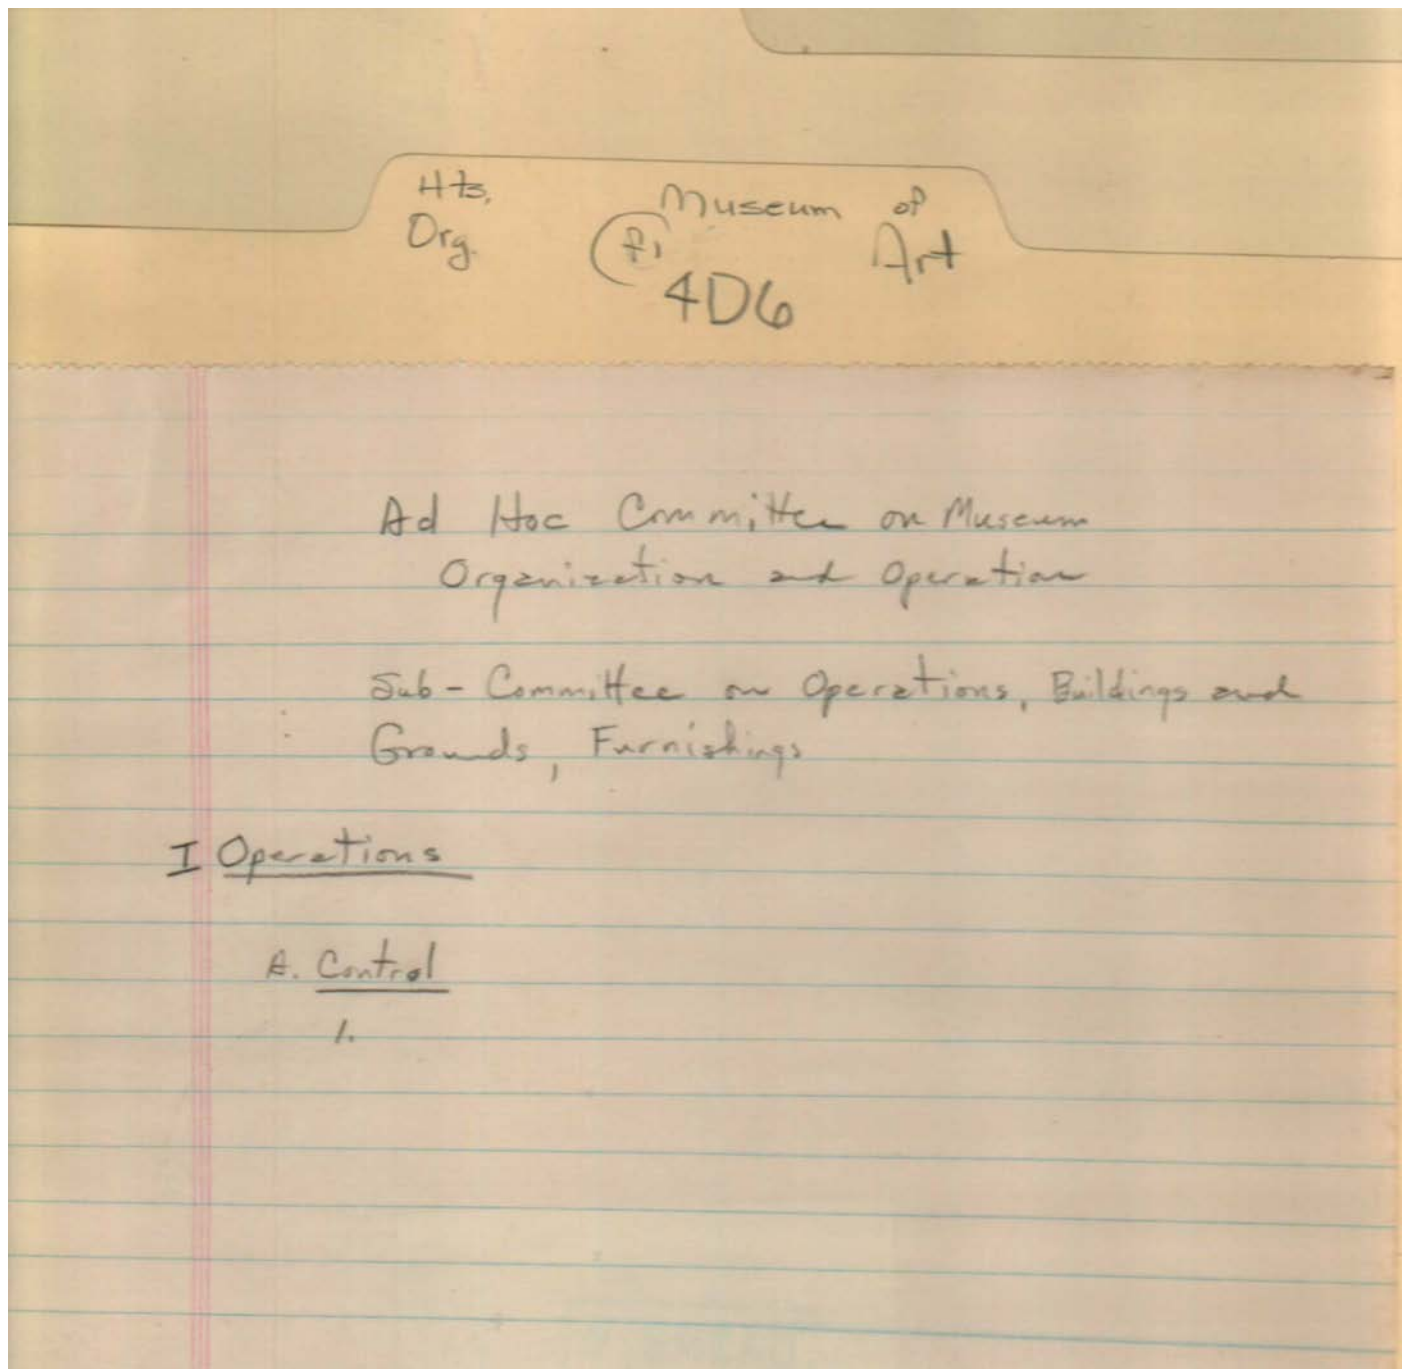 Hts. Museum of
Org. Art
4D6
Ad Hoc Committee on Museum
Organization and Operation
Sub-Committee on Operations, Buildings and
Grounds, Furnishings
I Operations
A. Control
1.